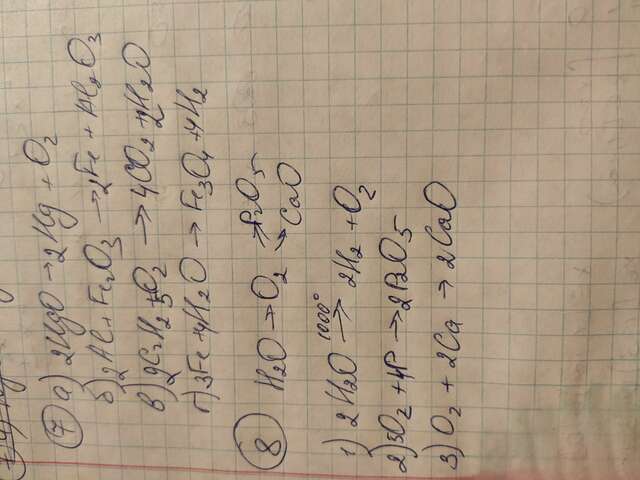 7 а) 2HgO → 2Hg + O2
б) 2Al + Fe2O3 → 2Fe + Al2O3
в) 2C2H2 + 5O2 → 4CO2 + 2H2O
г) 3Fe + 4H2O → Fe3O4 + 4H2
8 H2O → O2 → P2O5
→ CaO
1) 2H2O 1000° → 2H2 + O2
2) 5O2 + 4P → 2P2O5
3) O2 + 2Ca → 2CaO